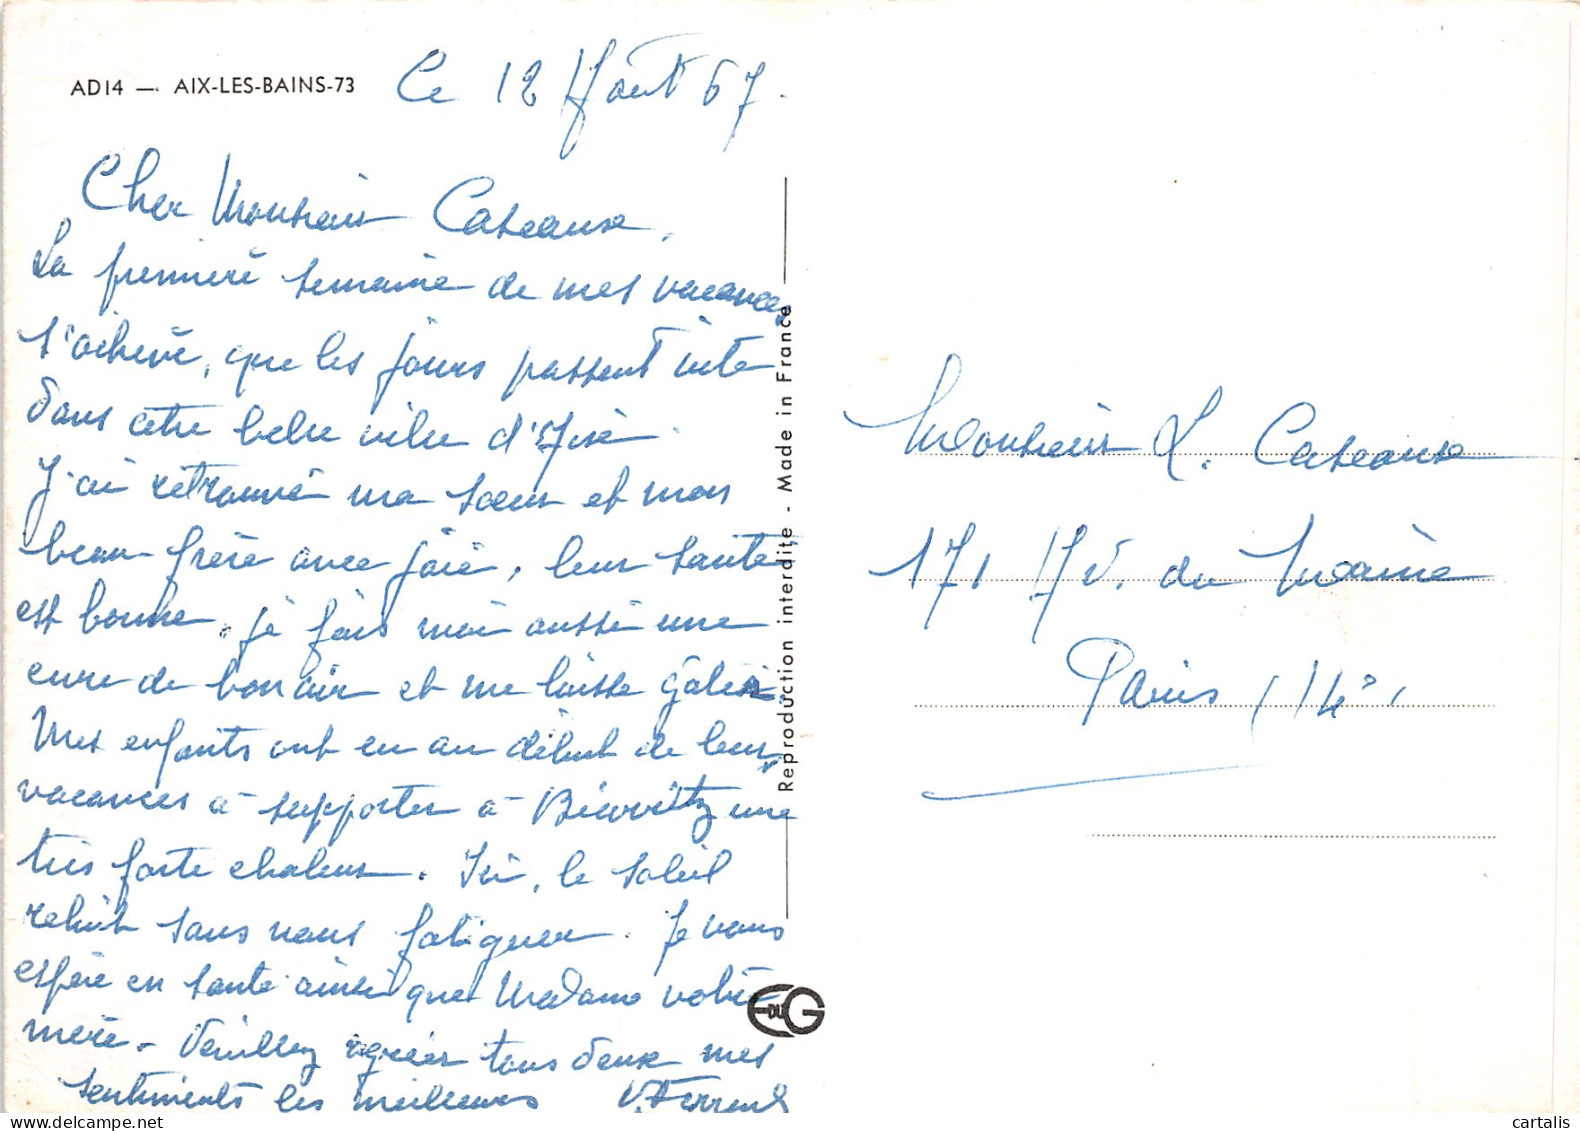 AD14 — AIX-LES-BAINS-73
Ce 12 Août 67.
Cher Monsieur
La première semaine de mes vacances
s'achève, que les jours passent vite
dans cette belle ville d'Aix.
J'ai retrouvé ma sœur et mon
beau frère avec joie, leur santé
est bonne. je fais moi aussi une
cure de bon air et me laisse gâter.
Mes enfants ont eu au début de leurs
vacances à supporter à Biarritz une
très forte chaleur. Ici, le soleil
reluit sans nous fatiguer. Je vous
espère en santé ainsi que Madame votre
mère. Veuillez agréer tous deux mes
sentiments les meilleurs
Reproduction interdite - Made in France
EDUG
Monsieur L.
171 Av. du Maine
Paris (14°)
cartalis